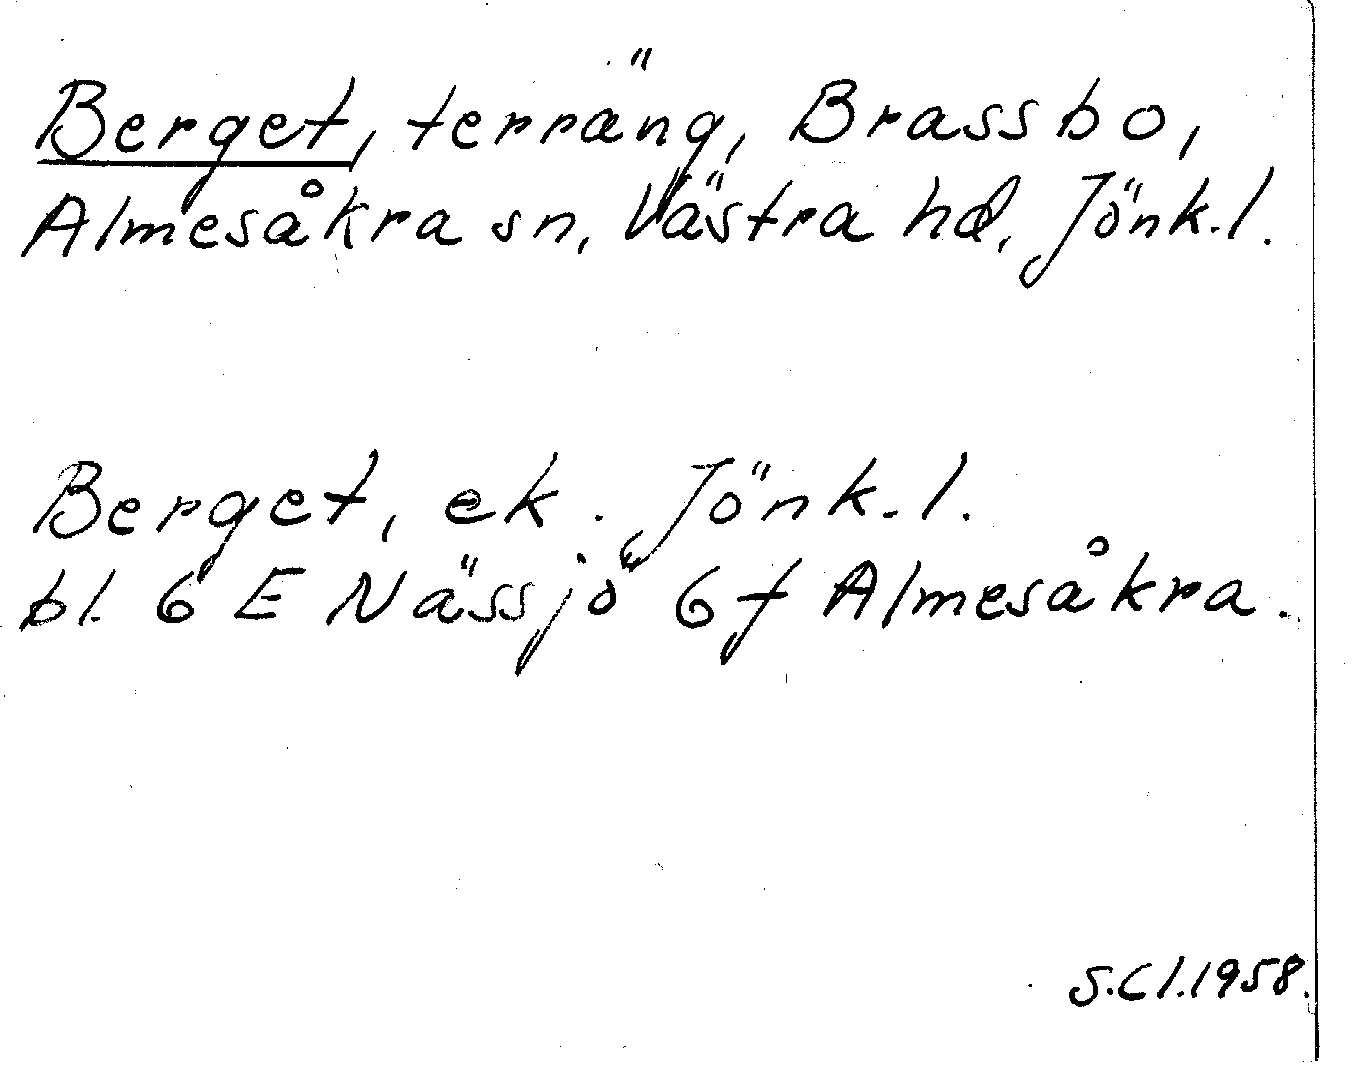 Berget, terräng, Brassbo,
Almesåkra sn, Västra hd, Jönk.l.
Berget, ek. Jönk.l.
bl. 6 E Nässjö 6f Almesåkra.
S.Cl.1958.